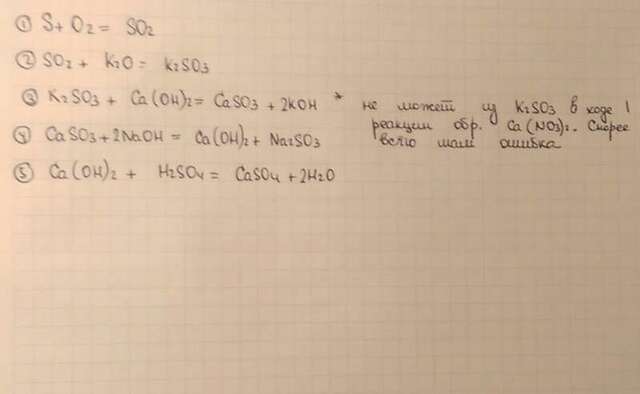 ① S + O2 = SO2
② SO2 + K2O = K2SO3
③ K2SO3 + Ca(OH)2 = CaSO3 + 2KOH * не может из K2SO3 в ходе
реакции обр. Ca(NO3)2. Скорее
всего там ошибка
④ CaSO3 + 2NaOH = Ca(OH)2 + Na2SO3
⑤ Ca(OH)2 + H2SO4 = CaSO4 + 2H2O